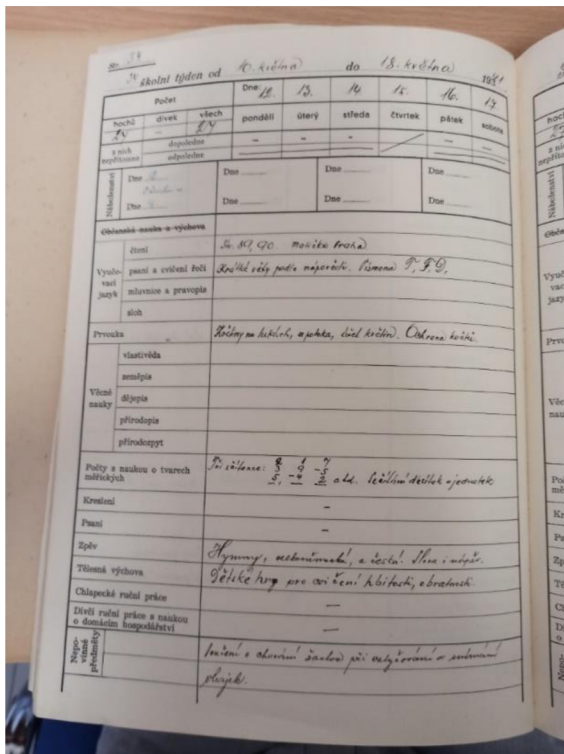 34
školní týden od 10. května do 18. května 1941.
Počet Dne: 12. 13. 14. 15. 16. 17
hochů dívek všech pondělí úterý středa čtvrtek pátek sobota
27 – 27
z nich nepřítomno dopoledne – – – –
odpoledne
Náboženství Dne Dne Dne Dne
Dne Dne Dne Dne
Občanská nauka a výchova
Vyučovací jazyk čtení 89, 90. Praha
psaní a cvičení řeči Krátké věty podle nápovědi. Písmena T, F, D.
mluvnice a pravopis
sloh
Prvouka Květiny na lukách, u potoka, květin. Ochrana květů.
Věcné nauky vlastivěda
zeměpis
dějepis
přírodopis
přírodozpyt
Počty s naukou o tvarech měřických atd. desítek a jednotek
Kreslení –
Psaní –
Zpěv Hymny, a česká. Slova i nápěv.
Tělesná výchova Dětské hry pro cvičení hbitosti, obratnosti.
Chlapecké ruční práce –
Dívčí ruční práce s naukou o domácím hospodářství –
Nepovinné předměty o chování žactva při vztyčování a snímání
vlajek.